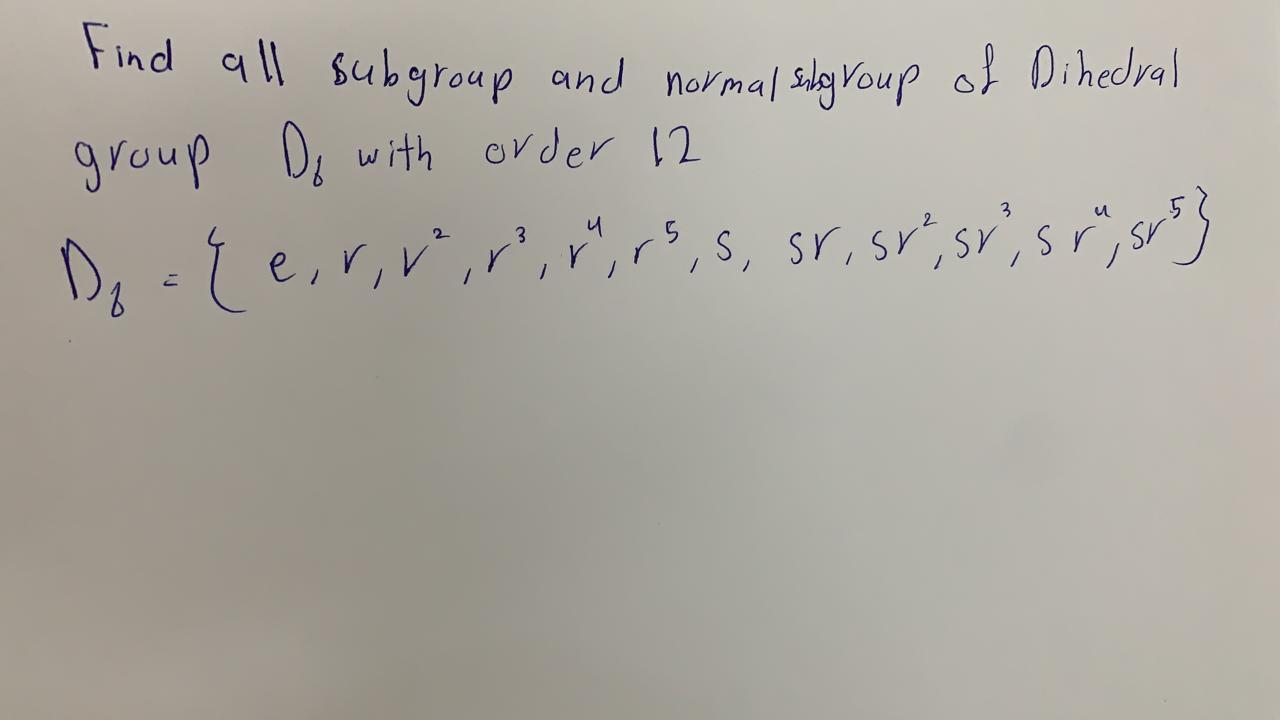 Find all subgroup and normal subgroup of Dihedral
group D₆ with order 12
D₆ = { e, r, r², r³, r⁴, r⁵, s, sr, sr², sr³, sr⁴, sr⁵}